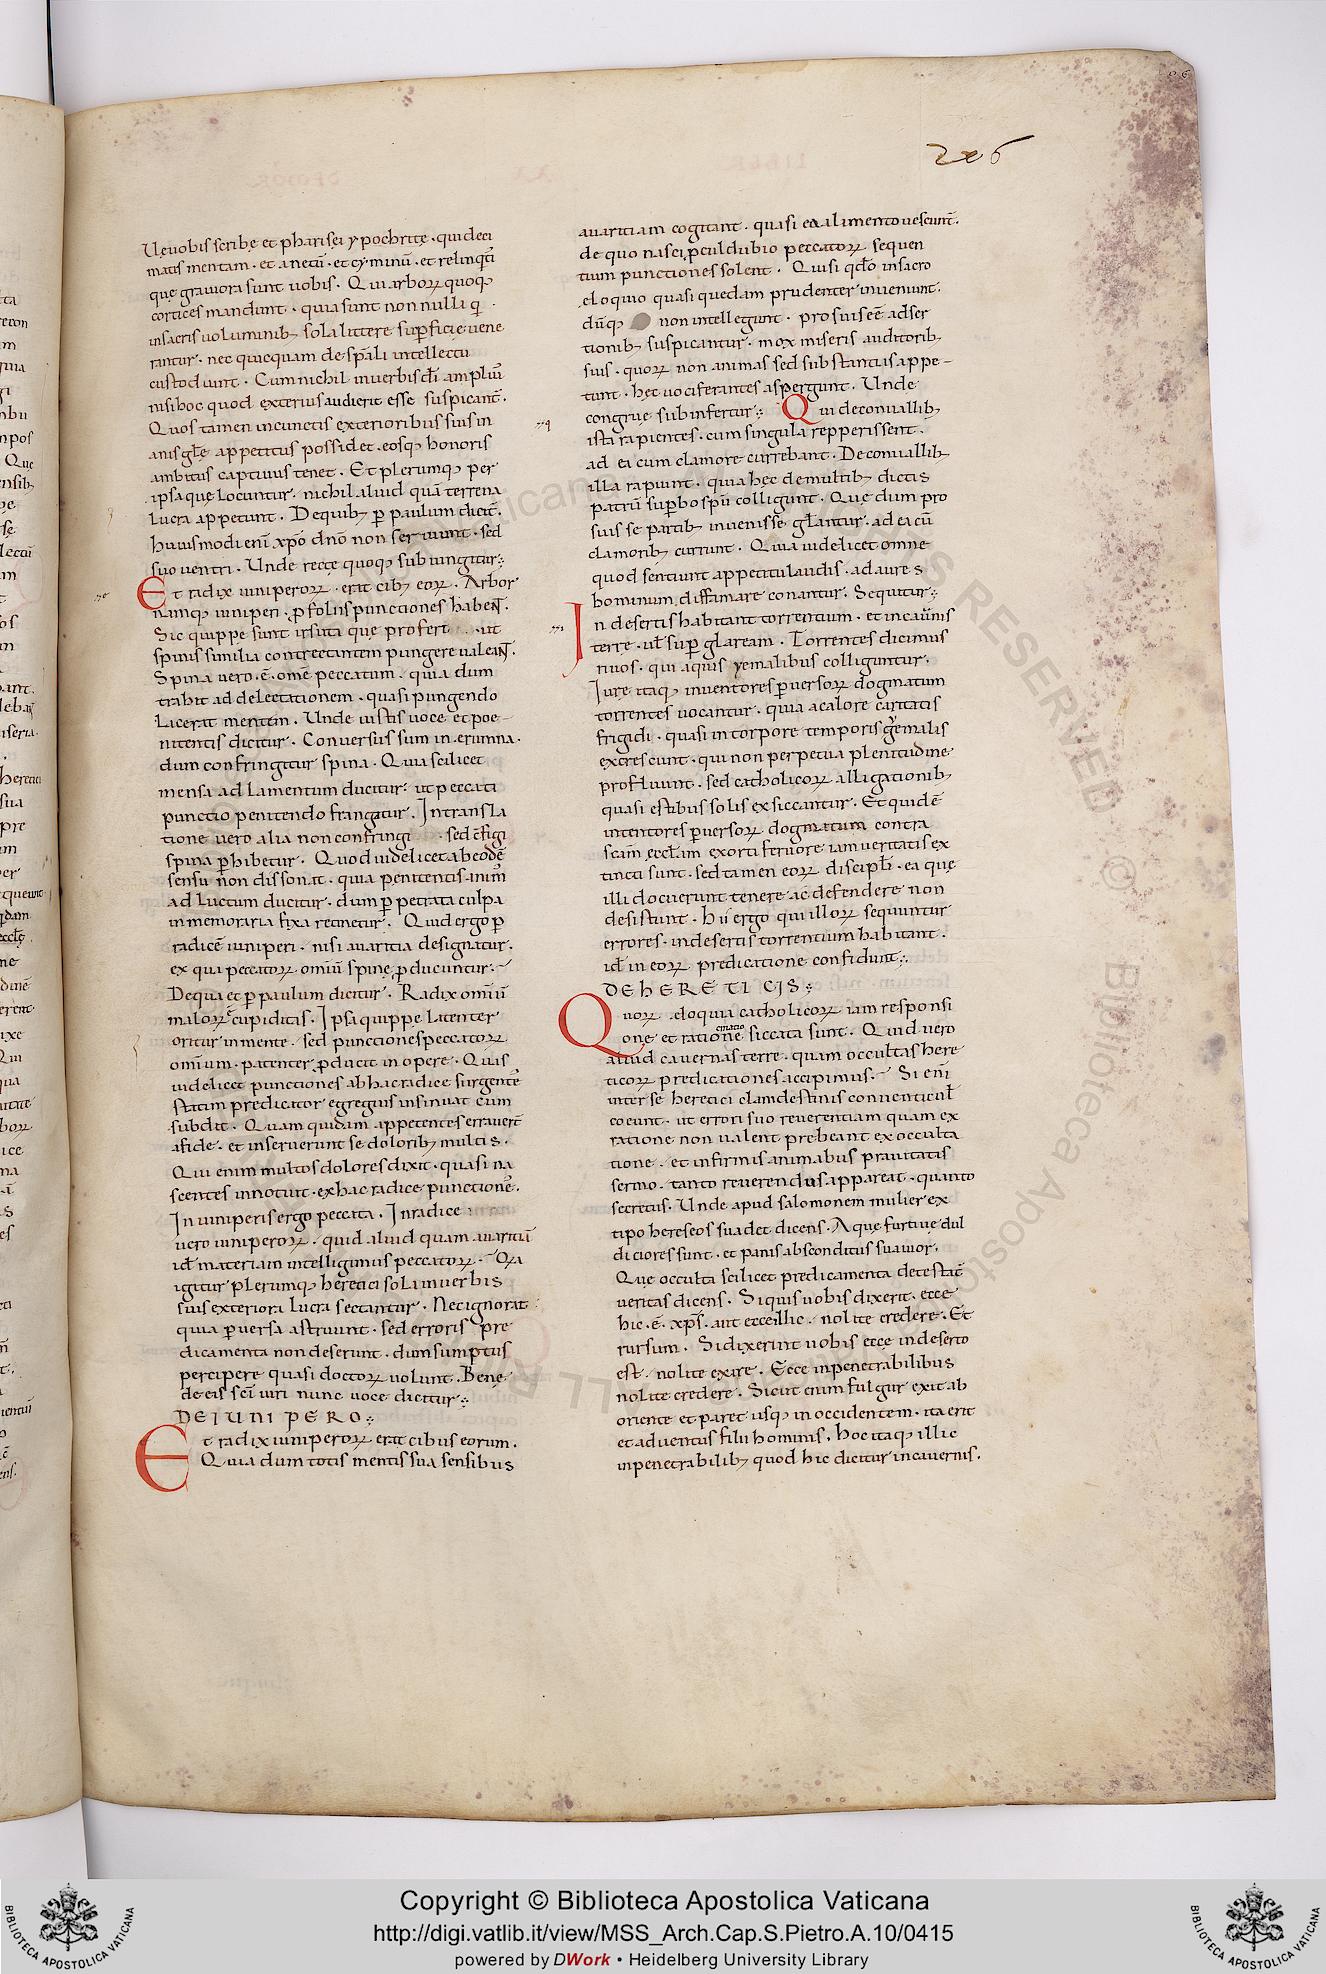 206
Uę uobis scribę et pharisei ypochritę · qui deci
matis mentam · et anetū · et cyminū · et relinq̄tis
quę grauiora sunt uobis · Qui arborꝝ quoq;
cortices mandunt · quia sunt non nulli q̄
in sacris uoluminib; sola littere sup̱ficię uene
rantur · nec quicquam de sp̄ali intellectu
custodiunt · Cum nichil in uerbis d̄i ampliū
nisi hoc quod exterius audierit esse suspicant̄ ·
Quos tamen in cunctis exterioribus suis in
anis gl̄ę appetitus possidet · eosq; honoris
ambitus captiuus tenet · Et plerumq; per
ipsa quę locuntur · nichil aliud quā terrena
lucra appetunt · De quib; p̱ paulum dicit̄ ·
huiusmodi eni xp̄o dn̄o non seruiunt · sed
suo uentri · Unde recte quoq; subiungitur ·
Et radix iuniperorꝝ · erat cib; eorꝝ · Arbor
namq; iuniperi · ꝓ foliis punctiones habent ·
Sic quippe sunt irsuta que profert ut
spinis similia contrectantem pungere ualeant ·
Spina uero · ē · om̄e peccatum · quia dum
trahit ad delectationem · quasi pungendo
lacerat mentem · Unde iustis uoce et poe-
nitentis dicitur · Conuersus sum in erumna ·
dum confringitur spina · Quia scilicet
mensa ad lamentum ducitur · ut peccati
punctio penitendo frangatur · In transla
tione uero alia non confringi sed c̄figi
spina p̱hibetur · Quod uidelicet ab eodē
sensu non dissonat · quia penitentis anim̄
ad luctum ducitur · dum p̱petrata culpa
in memoraria fixa retinetur · Quid ergo p̱
radicē iuniperi · nisi auaritia designatur ·
ex qua peccatorꝝ omiū spinę ꝓducuntur ·
De qua et p̱ paulum dicitur · Radix omiū
malorꝝ ē cupiditas · Ipsa quippe latenter
oritur in mente · sed punctiones peccatorꝝ
omnium · patenter ꝓducit in opere · Quas
uidelicet punctiones ab hac radice surgentē
statim predicator egregius insinuat cum
subdit · Quam quidam appetentes errauert̄
a fide · et inseruerunt se dolorib; multis ·
Qui enim multos dolores dixit · quasi na
scentes innotuit · ex hac radice punctione ·
In iuniperis ergo peccata · In radice
uero iuniperorꝝ · quid aliud quam auaritiā
id materiam intelligimus peccatorꝝ · Qꝛa
igitur plerumq; heretici sola in uerbis
suis exteriora lucra sectantur · Nec ignorat
quia p̱uersa astruunt · sed erroris pre
dicamenta non deserunt · dum sumptus
percipere quasi doctorꝝ uolunt · Bene
de eis sc̄i uiri nunc uoce dicitur ·
DE IUNIPERO ·
Et radix iuniperorꝝ erat cibus eorum ·
Quia dum totis mentis sua sensibus
auaritiam cogitant · quasi ea alimento uescunt̄ ·
de quo nasci ꝓculdubio peccatorꝝ sequen
tium punctiones solent · Qui si qd̄o in sacro
eloquio quasi quedam prudenter inueniunt ·
dūq; non intellegunt · pro suis eē adser
tionib; suspicantur · mox miseris auditorib;
suis · quorꝝ non animas sed substantias appe-
tunt · hęc uociferantes aspergunt · Unde
congrue subinfertur · Qui de conuallib;
ista rapientes · cum singula repperissent ·
ad ea cum clamore currebant · De conuallib;
illa rapiunt · quia hęc de multib; dictis
patrū sup̱bo sp̄u colligunt · Quę dum pro
suis se partib; inuenisse gl̄antur · ad ea cū
clamorib; currunt · Quia uidelicet omne
quod sentiunt appetitu laudis · ad aures
hominum diffamare conantur · Sequitur ·
In desertis habitant torrentium · et in cauernis
terre · ul̄ sup̱ glaream · Torrentes dicimus
riuos · qui aquis yemalibus colliguntur ·
Iure itaq; inuentores p̱uersorꝝ dogmatum
torrentes uocantur · quia a calore caritatis
frigidi · quasi in torpore temporis hyemalis
excrescunt · qui non perpetua plenitudine
profluunt · sed catholicorꝝ alligationib;
quasi estibus solis exsiccantur · Et quidē
inuentores p̱uersorꝝ dogmatum contra
scām ęccl̄am exorti feruore iam ueritatis ex
tincti sunt · sed tamen eorꝝ discipl̄i · ea quę
illi docuerunt tenere ac defendere non
desistunt · Hii ergo qui illorꝝ sequuntur
errores · in desertis torrentium habitant ·
id̄ in eorꝝ predicatione confidunt ·
DE HERETICIS ·
Quorꝝ eloquia catholicorꝝ iam responsi
one et ratiocinatione siccata sunt · Quid uero
aliud cauernas terre · quam occultas here
ticorꝝ predicationes accipimus · Si eni
inter se heretici clandestinis conuenticul̄
coeunt · ut errori suo reuerentiam quam ex
ratione non ualent prebeant ex occulta
tione · et infirmis animabus prauitatis
sermo · tanto reuerendus appareat · quanto
secretus · Unde apud salomonem mulier ex
tipo hereseos suadet dicens · Aque furtiue dul
ciores sunt · et panis absconditus suauior ·
Que occulta scilicet predicamenta detestat̄
ueritas dicens · Si quis uobis dixerit · ecce
hic · ē · xp̄s · aut ecce illic · nolite credere · Et
rursum · Si dixerint uobis ecce in deserto
est · nolite exire · Ecce in penetrabilibus
nolite credere · Sicut enim fulgur exit ab
oriente et paret usq; in occidentem · ita erit
et aduentus filii hominis · Hoc itaq; illic
in penetrabilib; quod hic dicitur in cauernis ·
Copyright © Biblioteca Apostolica Vaticana
http://digi.vatlib.it/view/MSS_Arch.Cap.S.Pietro.A.10/0415
powered by DWork • Heidelberg University Library